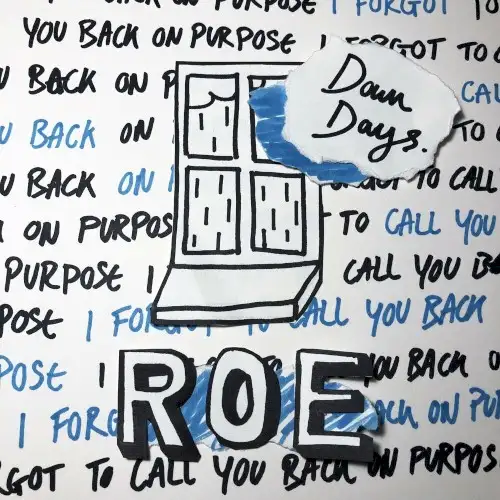 CALL YOU BACK ON PURPOSE I FORGOT TO
YOU BACK ON PURPOSE I FORGOT TO C
Down
Days.
U BACK ON P CAL
U BACK ON TO C
U BACK ON TO CALL
ON PURPOS TO CALL YOU
PURPOSE I CALL YOU B
POSE I FOR TO CALL YOU BACK
POSE I YOU BACK O
ROE
I FORG ACK ON PUR
RGOT TO CALL YOU BACK ON PURPOS